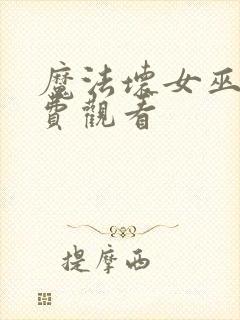 魔法壞女巫
費觀看
提摩西